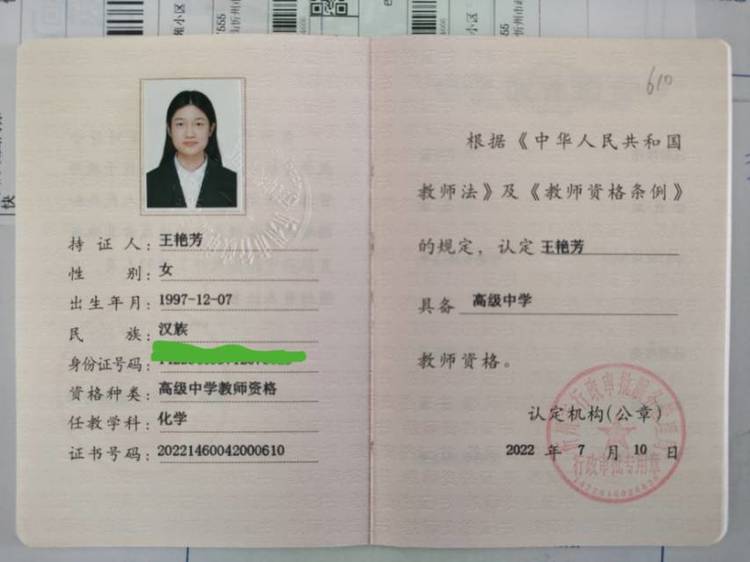 持证人：王艳芳
性别：女
出生年月：1997-12-07
民族：汉族
身份证号码：
资格种类：高级中学教师资格
任教学科：化学
证书号码：20221460042000610
610
根据《中华人民共和国
教师法》及《教师资格条例》
的规定，认定王艳芳
具备 高级中学
教师资格。
认定机构(公章)
2022 年 7 月 10 日
行政审批专用章